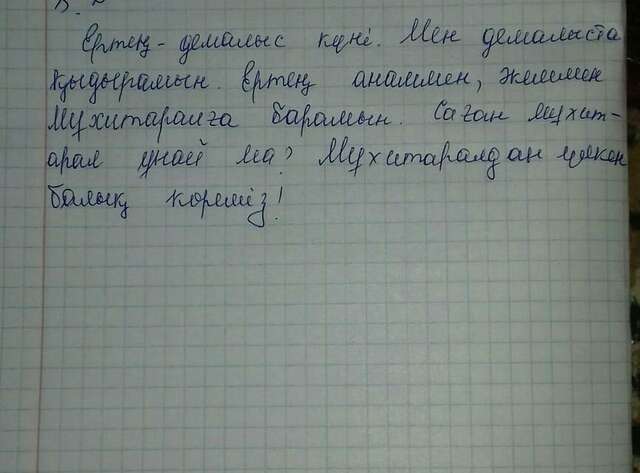 Ертең - демалыс күні. Мен демалыста
қыдырамын. Ертең анаммен, әкеммен
Мұхитаралға барамын. Саған мұхит-
арал ұнай ма? Мұхитаралдан үлкен
балық көреміз!